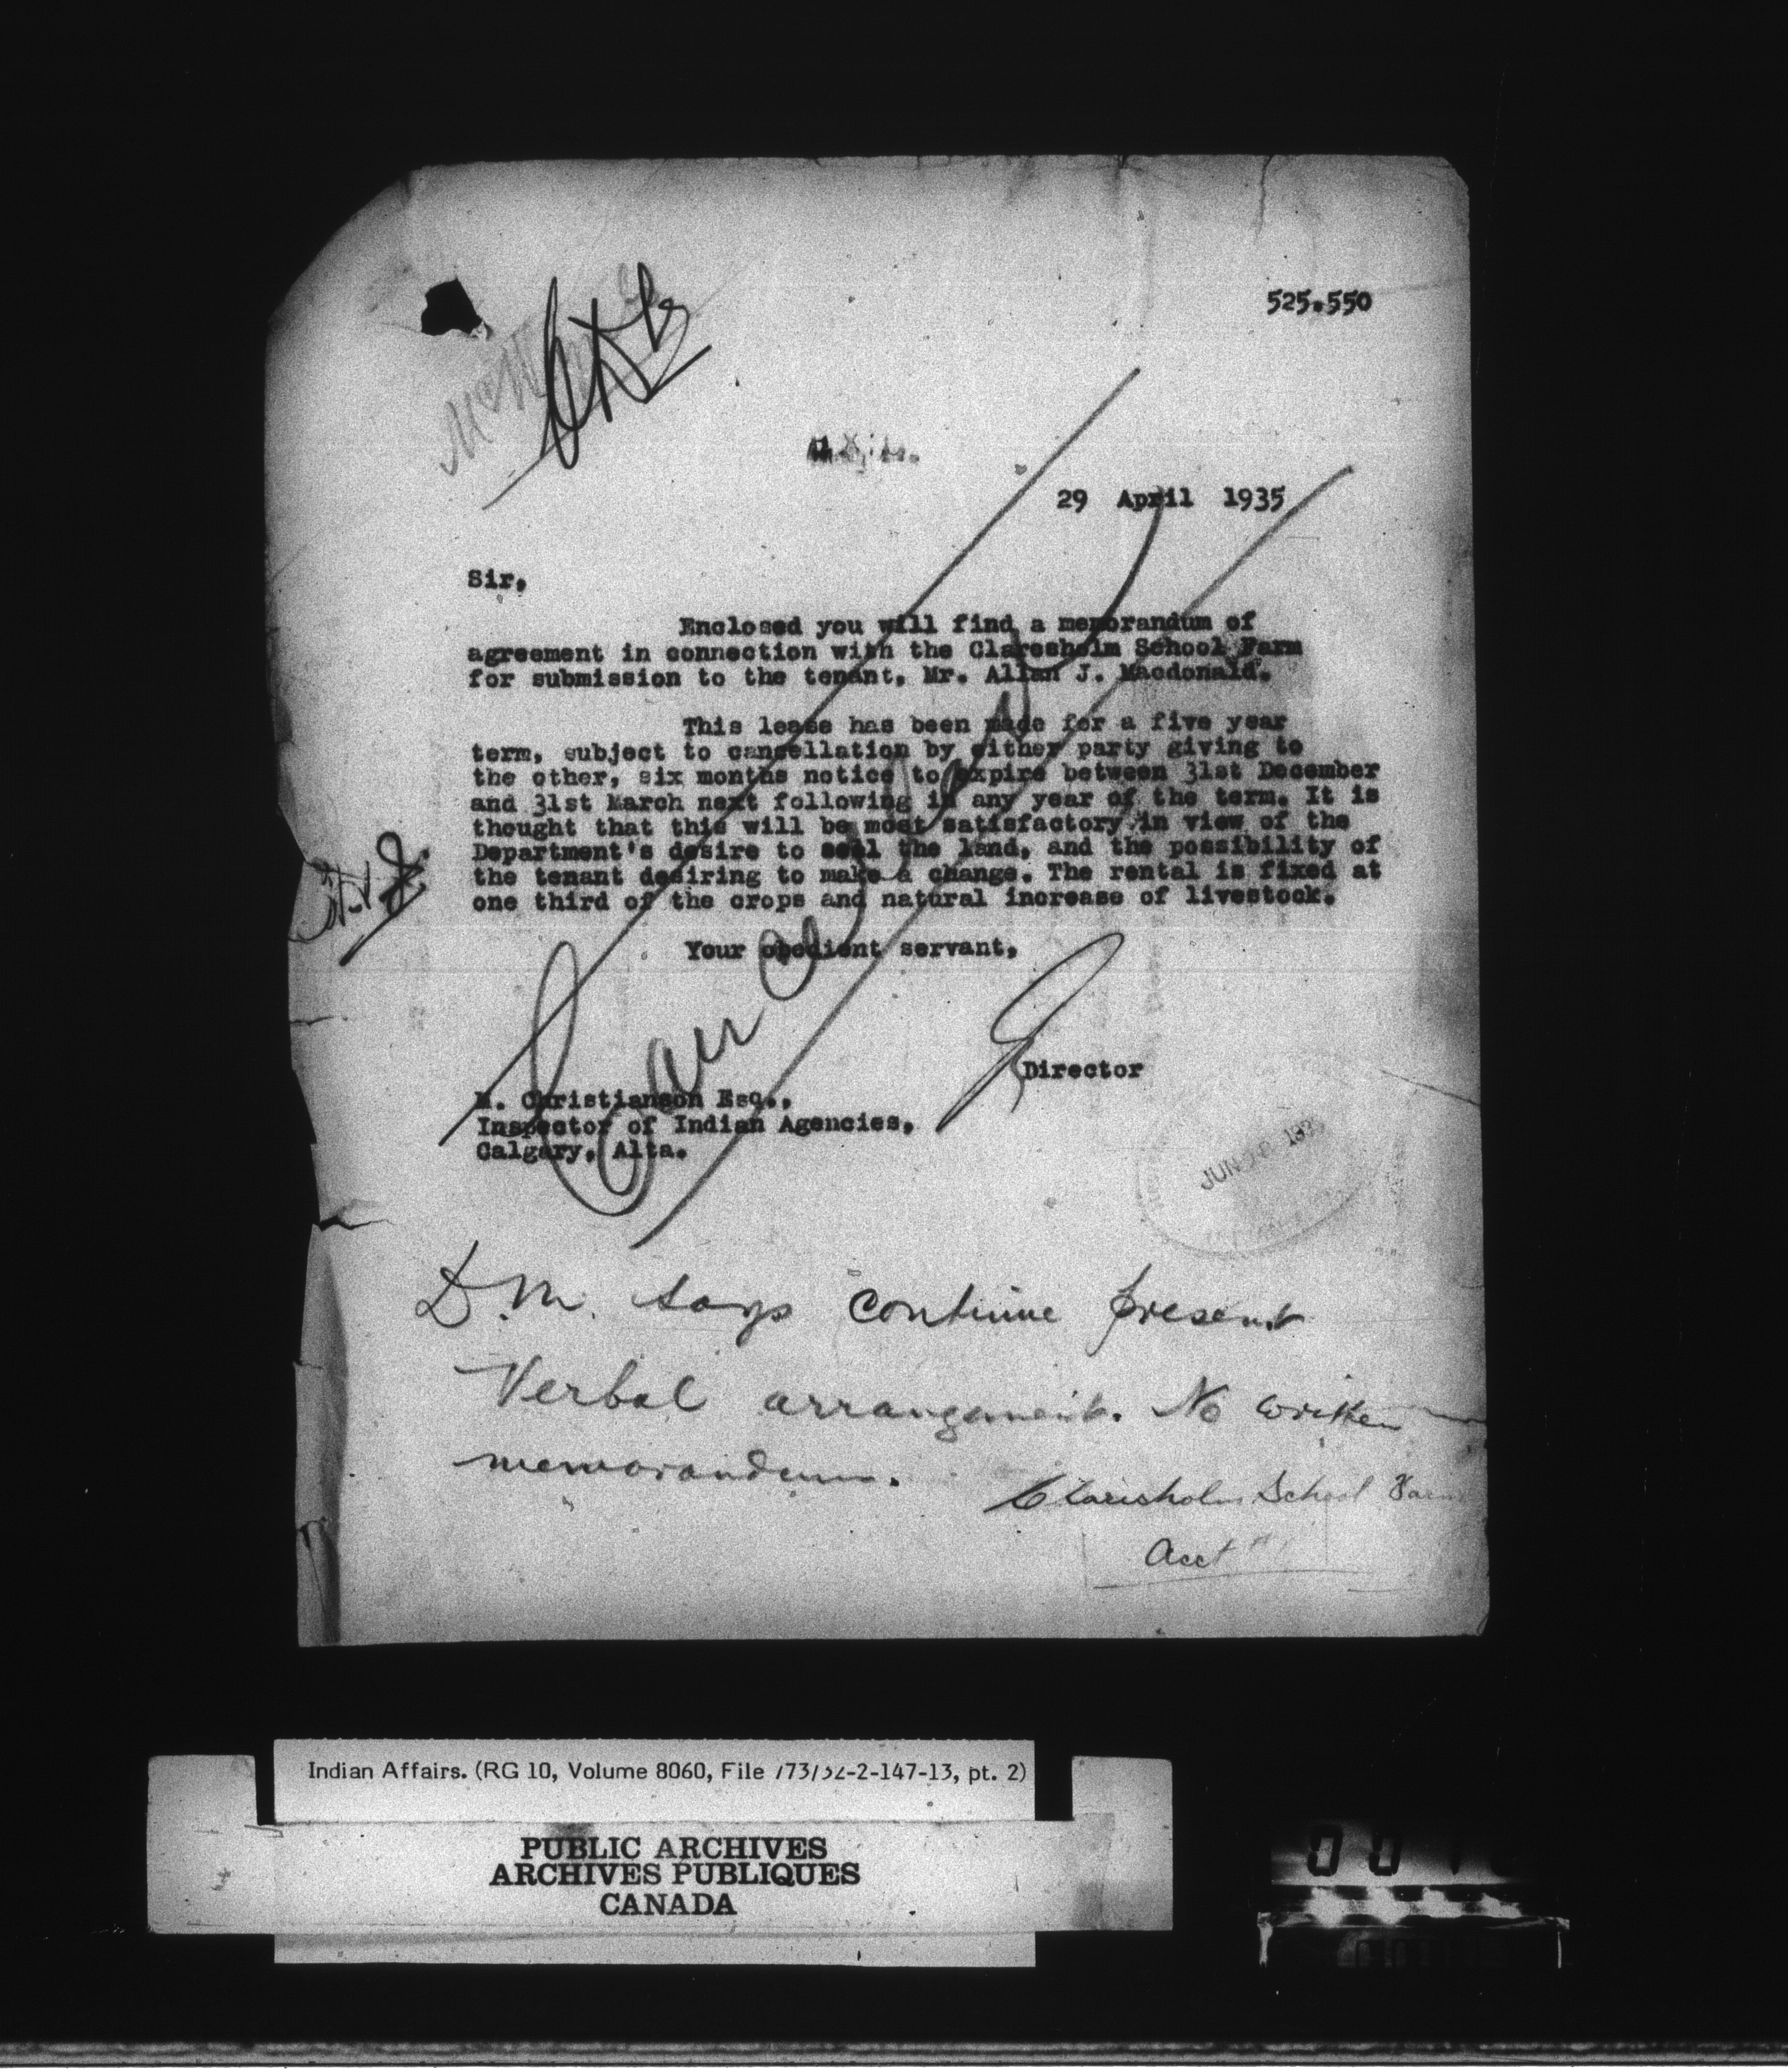 525.550
29 April 1935
Sir,
Enclosed you will find a memorandum of
agreement in connection with the Claresholm School Farm
for submission to the tenant, Mr. Allan J. Macdonald.
This lease has been made for a five year
term, subject to cancellation by either party giving to
the other, six months notice to expire between 31st December
and 31st March next following in any year of the term. It is
thought that this will be most satisfactory in view of the
Department's desire to sell the land, and the possibility of
the tenant desiring to make a change. The rental is fixed at
one third of the crops and natural increase of livestock.
Your obedient servant,
Cancelled
Director
M. Christianson Esq.,
Inspector of Indian Agencies,
Calgary, Alta.
JUN
D.M. says continue present
Verbal arrangement. No written
memorandum.
Clarisholm School Farm
Acct
Indian Affairs. (RG 10, Volume 8060, File 773/32-2-147-13, pt. 2)
PUBLIC ARCHIVES
ARCHIVES PUBLIQUES
CANADA